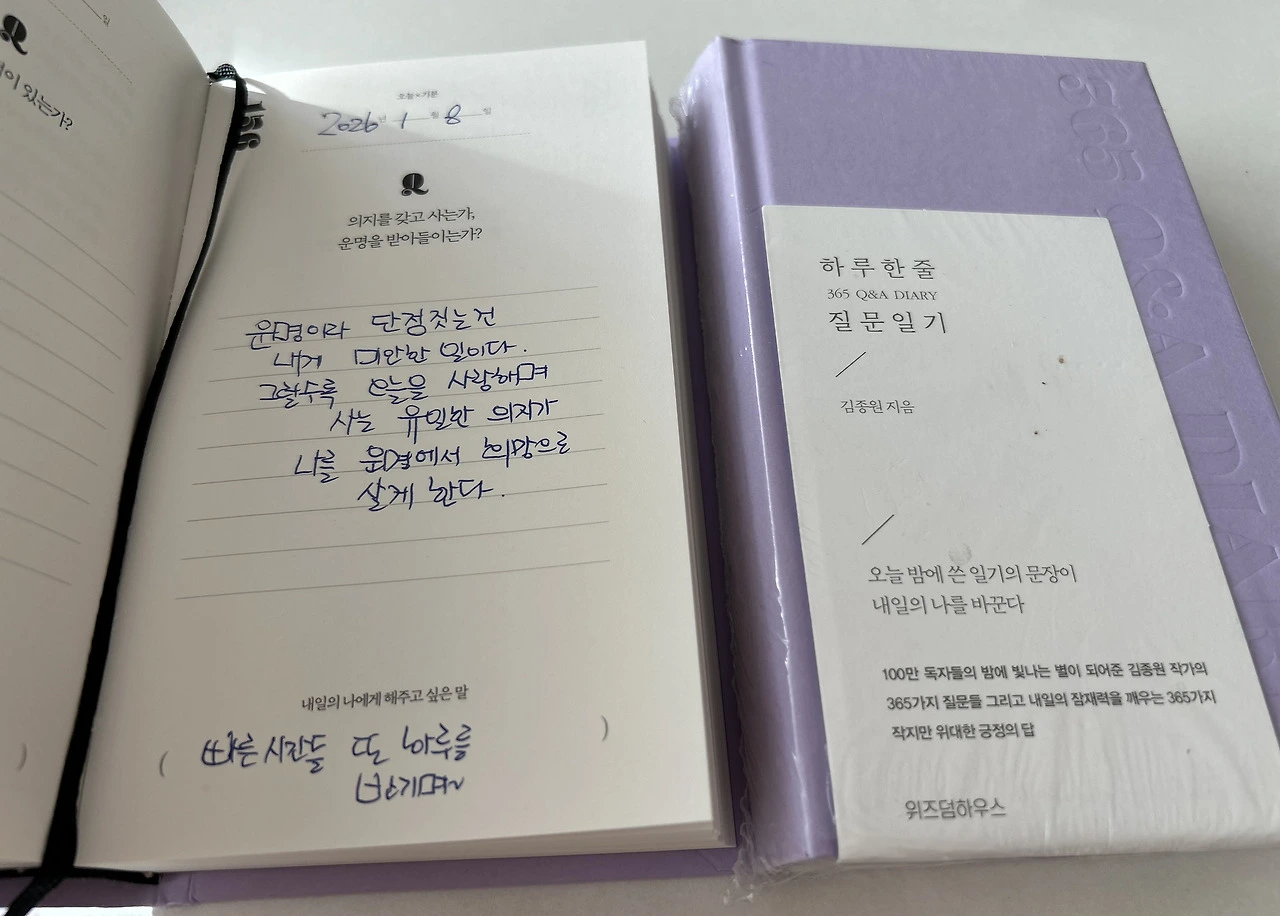 일
Q
이 있는가?
156
오늘의 기분
2026년 1월 8일
Q
의지를 갖고 사는가,
운명을 받아들이는가?
운명이라 단정짓는건
내게 미안한 일이다.
그럴수록 오늘을 사랑하며
사는 유일한 의지가
나를 운명에서 희망으로
살게 한다.
내일의 나에게 해주고 싶은 말
( 빠른 시간들 또 하루를 )
반기며~
)
365 Q&A DIA
하루 한 줄
365 Q&A DIARY
질문 일기
김종원 지음
오늘 밤에 쓴 일기의 문장이
내일의 나를 바꾼다
100만 독자들의 밤에 빛나는 별이 되어준 김종원 작가의
365가지 질문들 그리고 내일의 잠재력을 깨우는 365가지
작지만 위대한 긍정의 답
위즈덤하우스